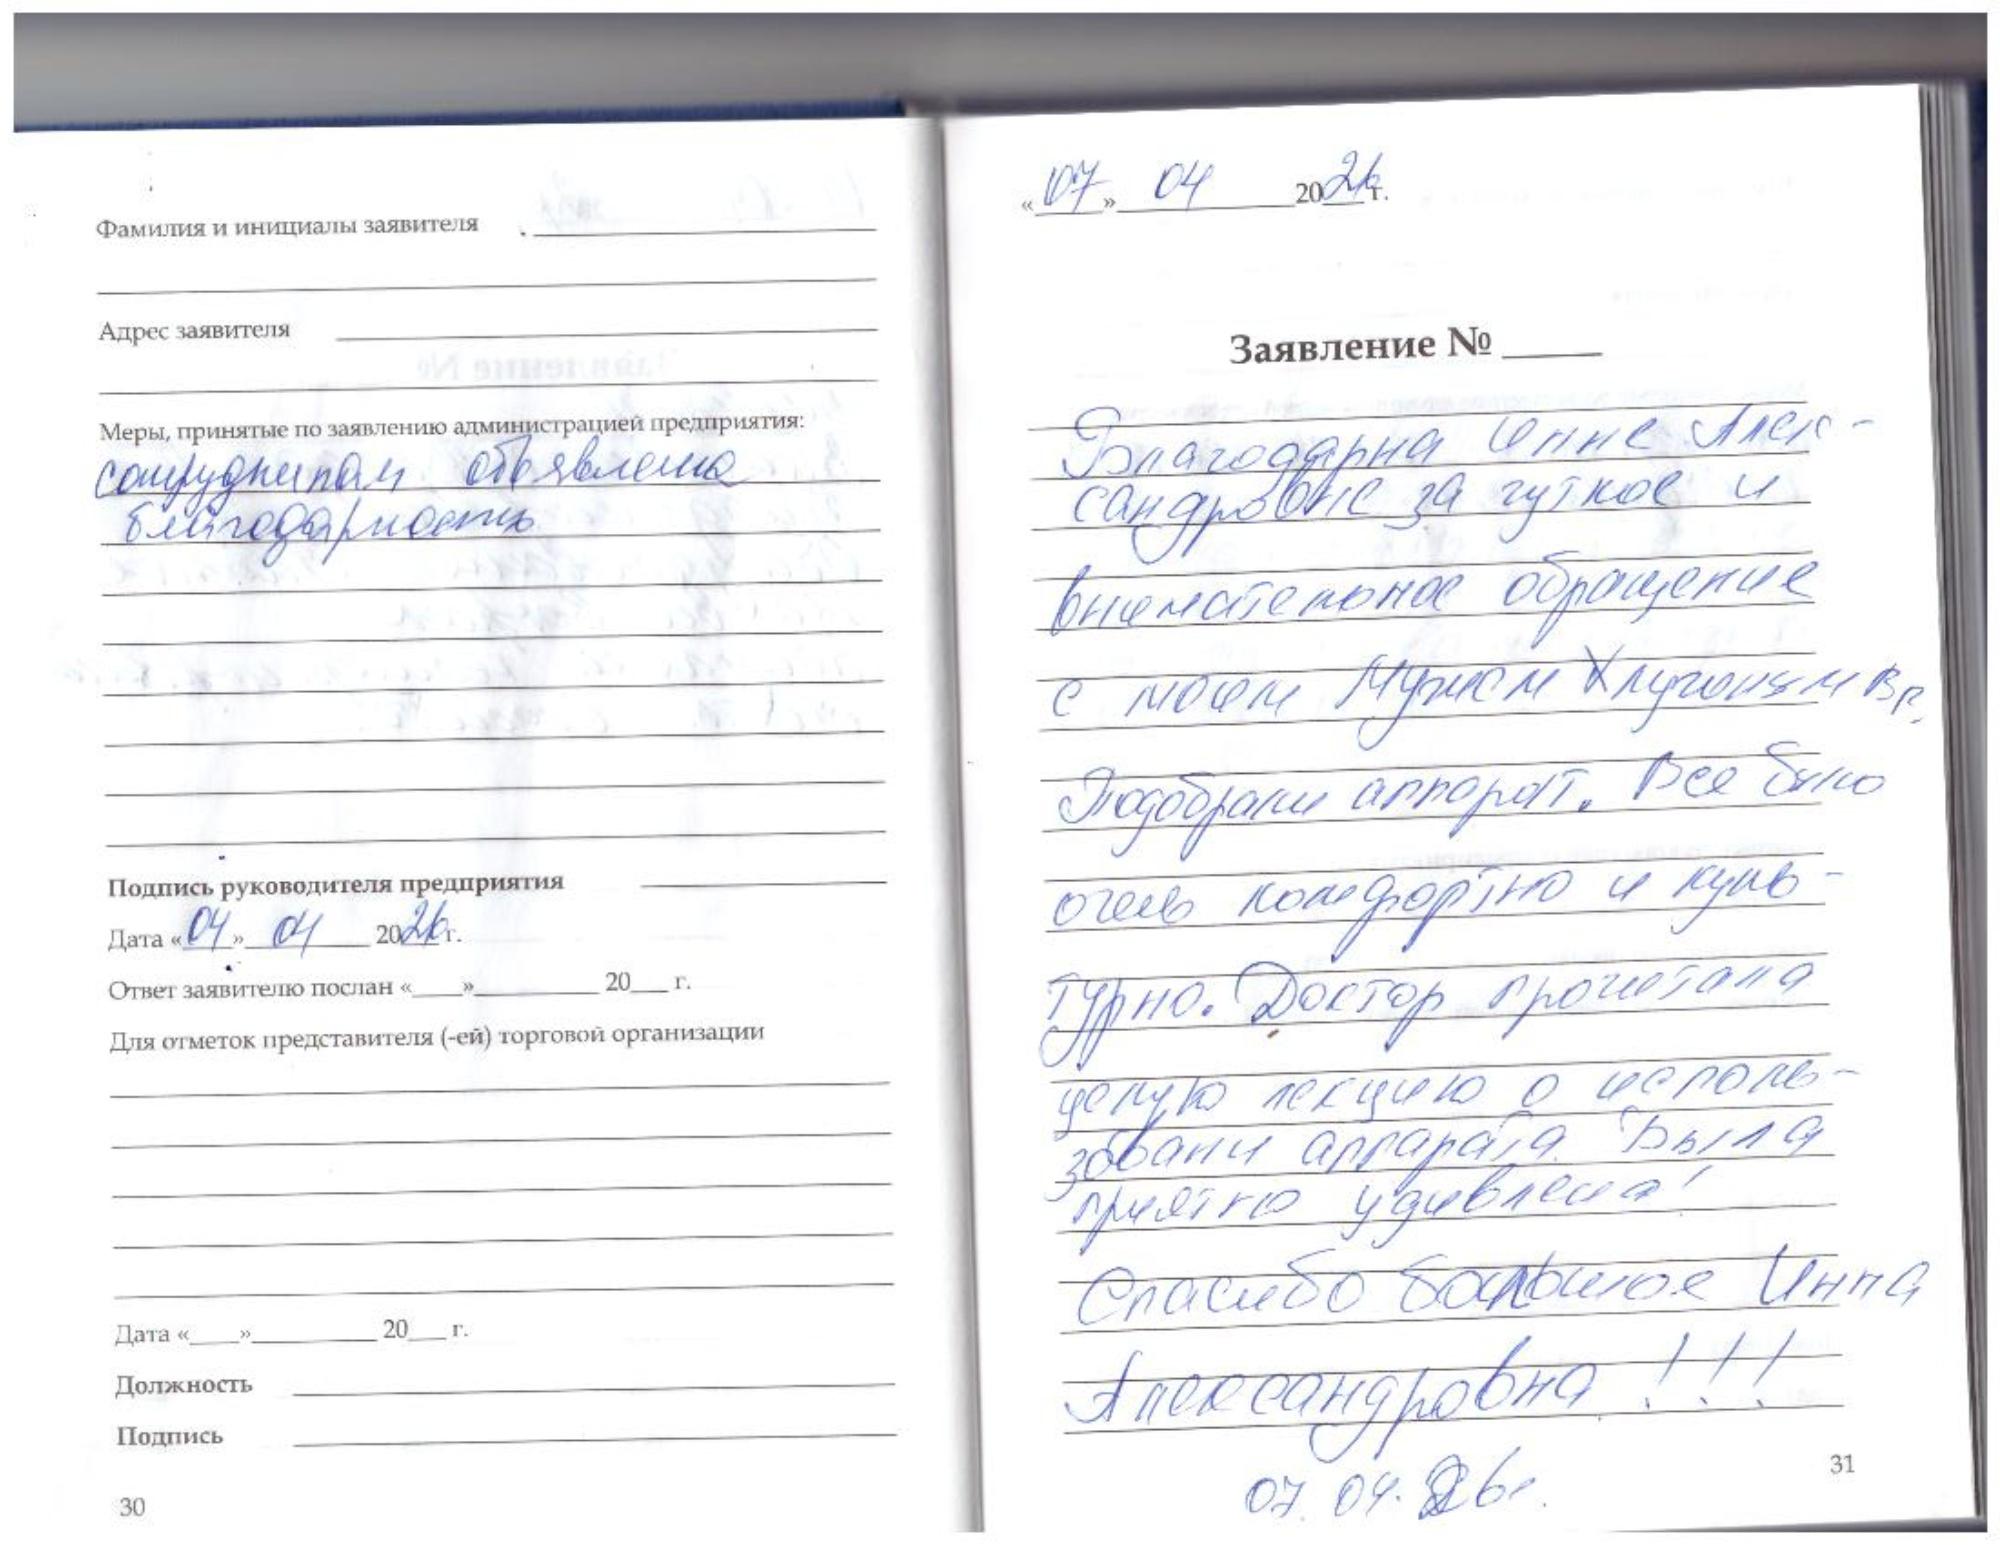 Фамилия и инициалы заявителя
Адрес заявителя
Меры, принятые по заявлению администрацией предприятия:
сотрудникам объявлена
благодарность
Подпись руководителя предприятия
Дата «04» 04 2026 г.
Ответ заявителю послан «___»_________ 20___ г.
Для отметок представителя (-ей) торговой организации
Дата «___»_________ 20___ г.
Должность
Подпись
30
«07» 04 2026 г.
Заявление № ____
Благодарна Инне Алек-
сандровне за чуткое и
внимательное обращение
с моим Мужем
Подобрали аппарат. Все было
очень комфортно и куль-
турно. Доктор прочитала
целую лекцию о исполь-
зовани аппарата. Была
приятно удивлена!
Спасибо большое Инна
Александровна!!!
07.04.26г.
31